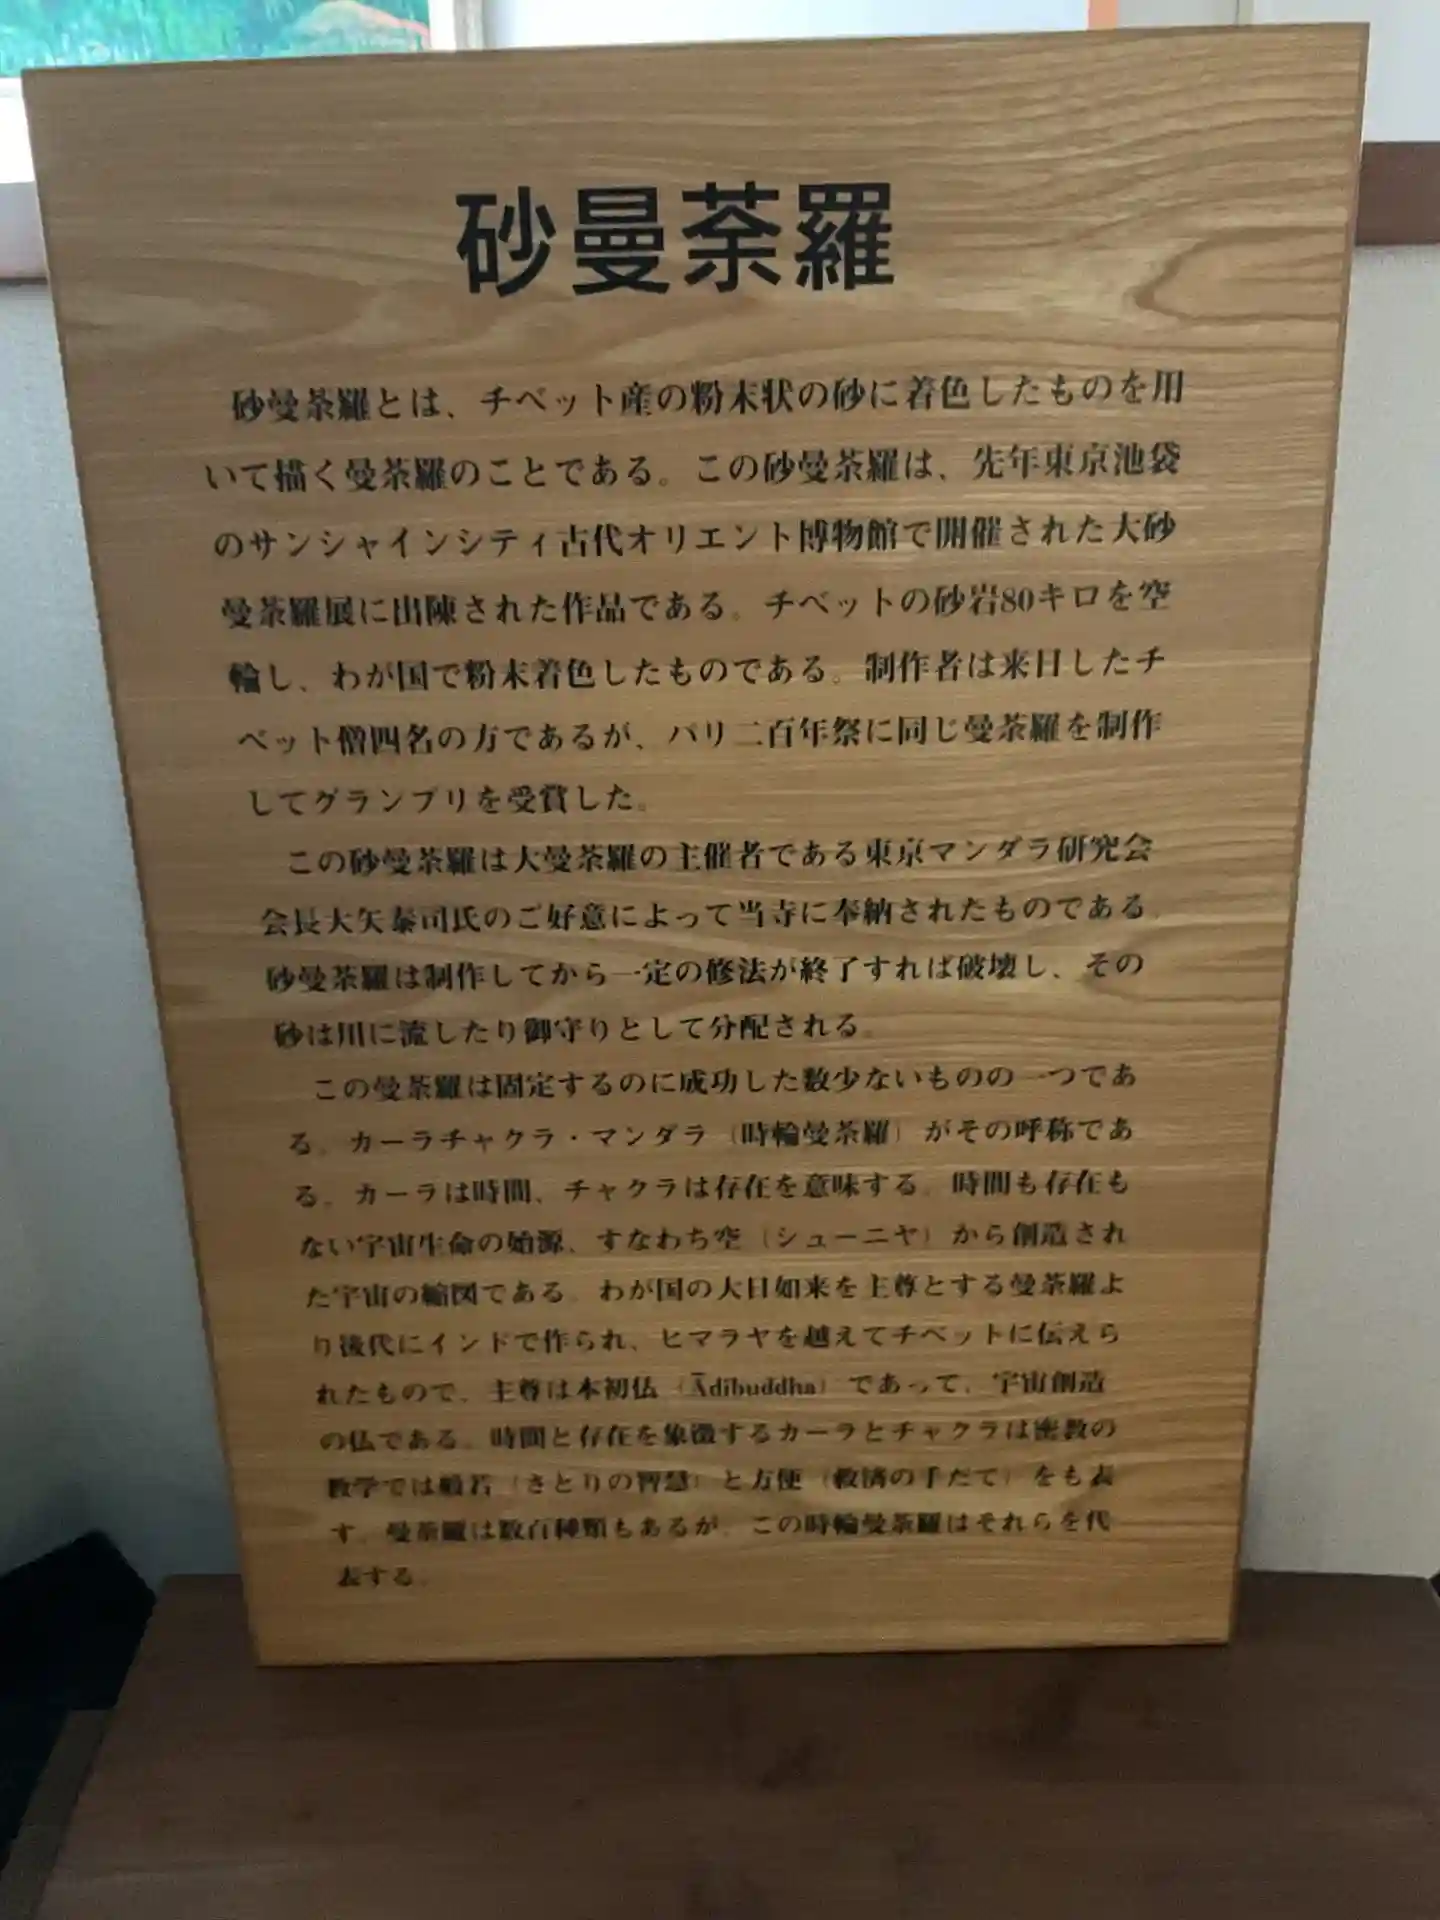 砂曼荼羅
砂曼荼羅とは、チベット産の粉末状の砂に着色したものを用
いて描く曼荼羅のことである。この砂曼荼羅は、先年東京池袋
のサンシャインシティ古代オリエント博物館で開催された大砂
曼荼羅展に出陳された作品である。チベットの砂岩80キロを空
輸し、わが国で粉末着色したものである。制作者は来日したチ
ベット僧四名の方であるが、パリ二百年祭に同じ曼荼羅を制作
してグランプリを受賞した。
この砂曼荼羅は大曼荼羅の主催者である東京マンダラ研究会
会長大矢泰司氏のご好意によって当寺に奉納されたものである。
砂曼荼羅は制作してから一定の修法が終了すれば破壊し、その
砂は川に流したり御守りとして分配される。
この曼荼羅は固定するのに成功した数少ないものの一つであ
る。カーラチャクラ・マンダラ（時輪曼荼羅）がその呼称であ
る。カーラは時間、チャクラは存在を意味する。時間も存在も
ない宇宙生命の始源、すなわち空（シューニヤ）から創造され
た宇宙の縮図である。わが国の大日如来を主尊とする曼荼羅よ
り後代にインドで作られ、ヒマラヤを越えてチベットに伝えら
れたもので、主尊は本初仏（Ādibuddha）であって、宇宙創造
の仏である。時間と存在を象徴するカーラとチャクラは密教の
教学では般若（さとりの智慧）と方便（救済の手だて）をも表
す。曼荼羅は数百種類もあるが、この時輪曼荼羅はそれらを代
表する。